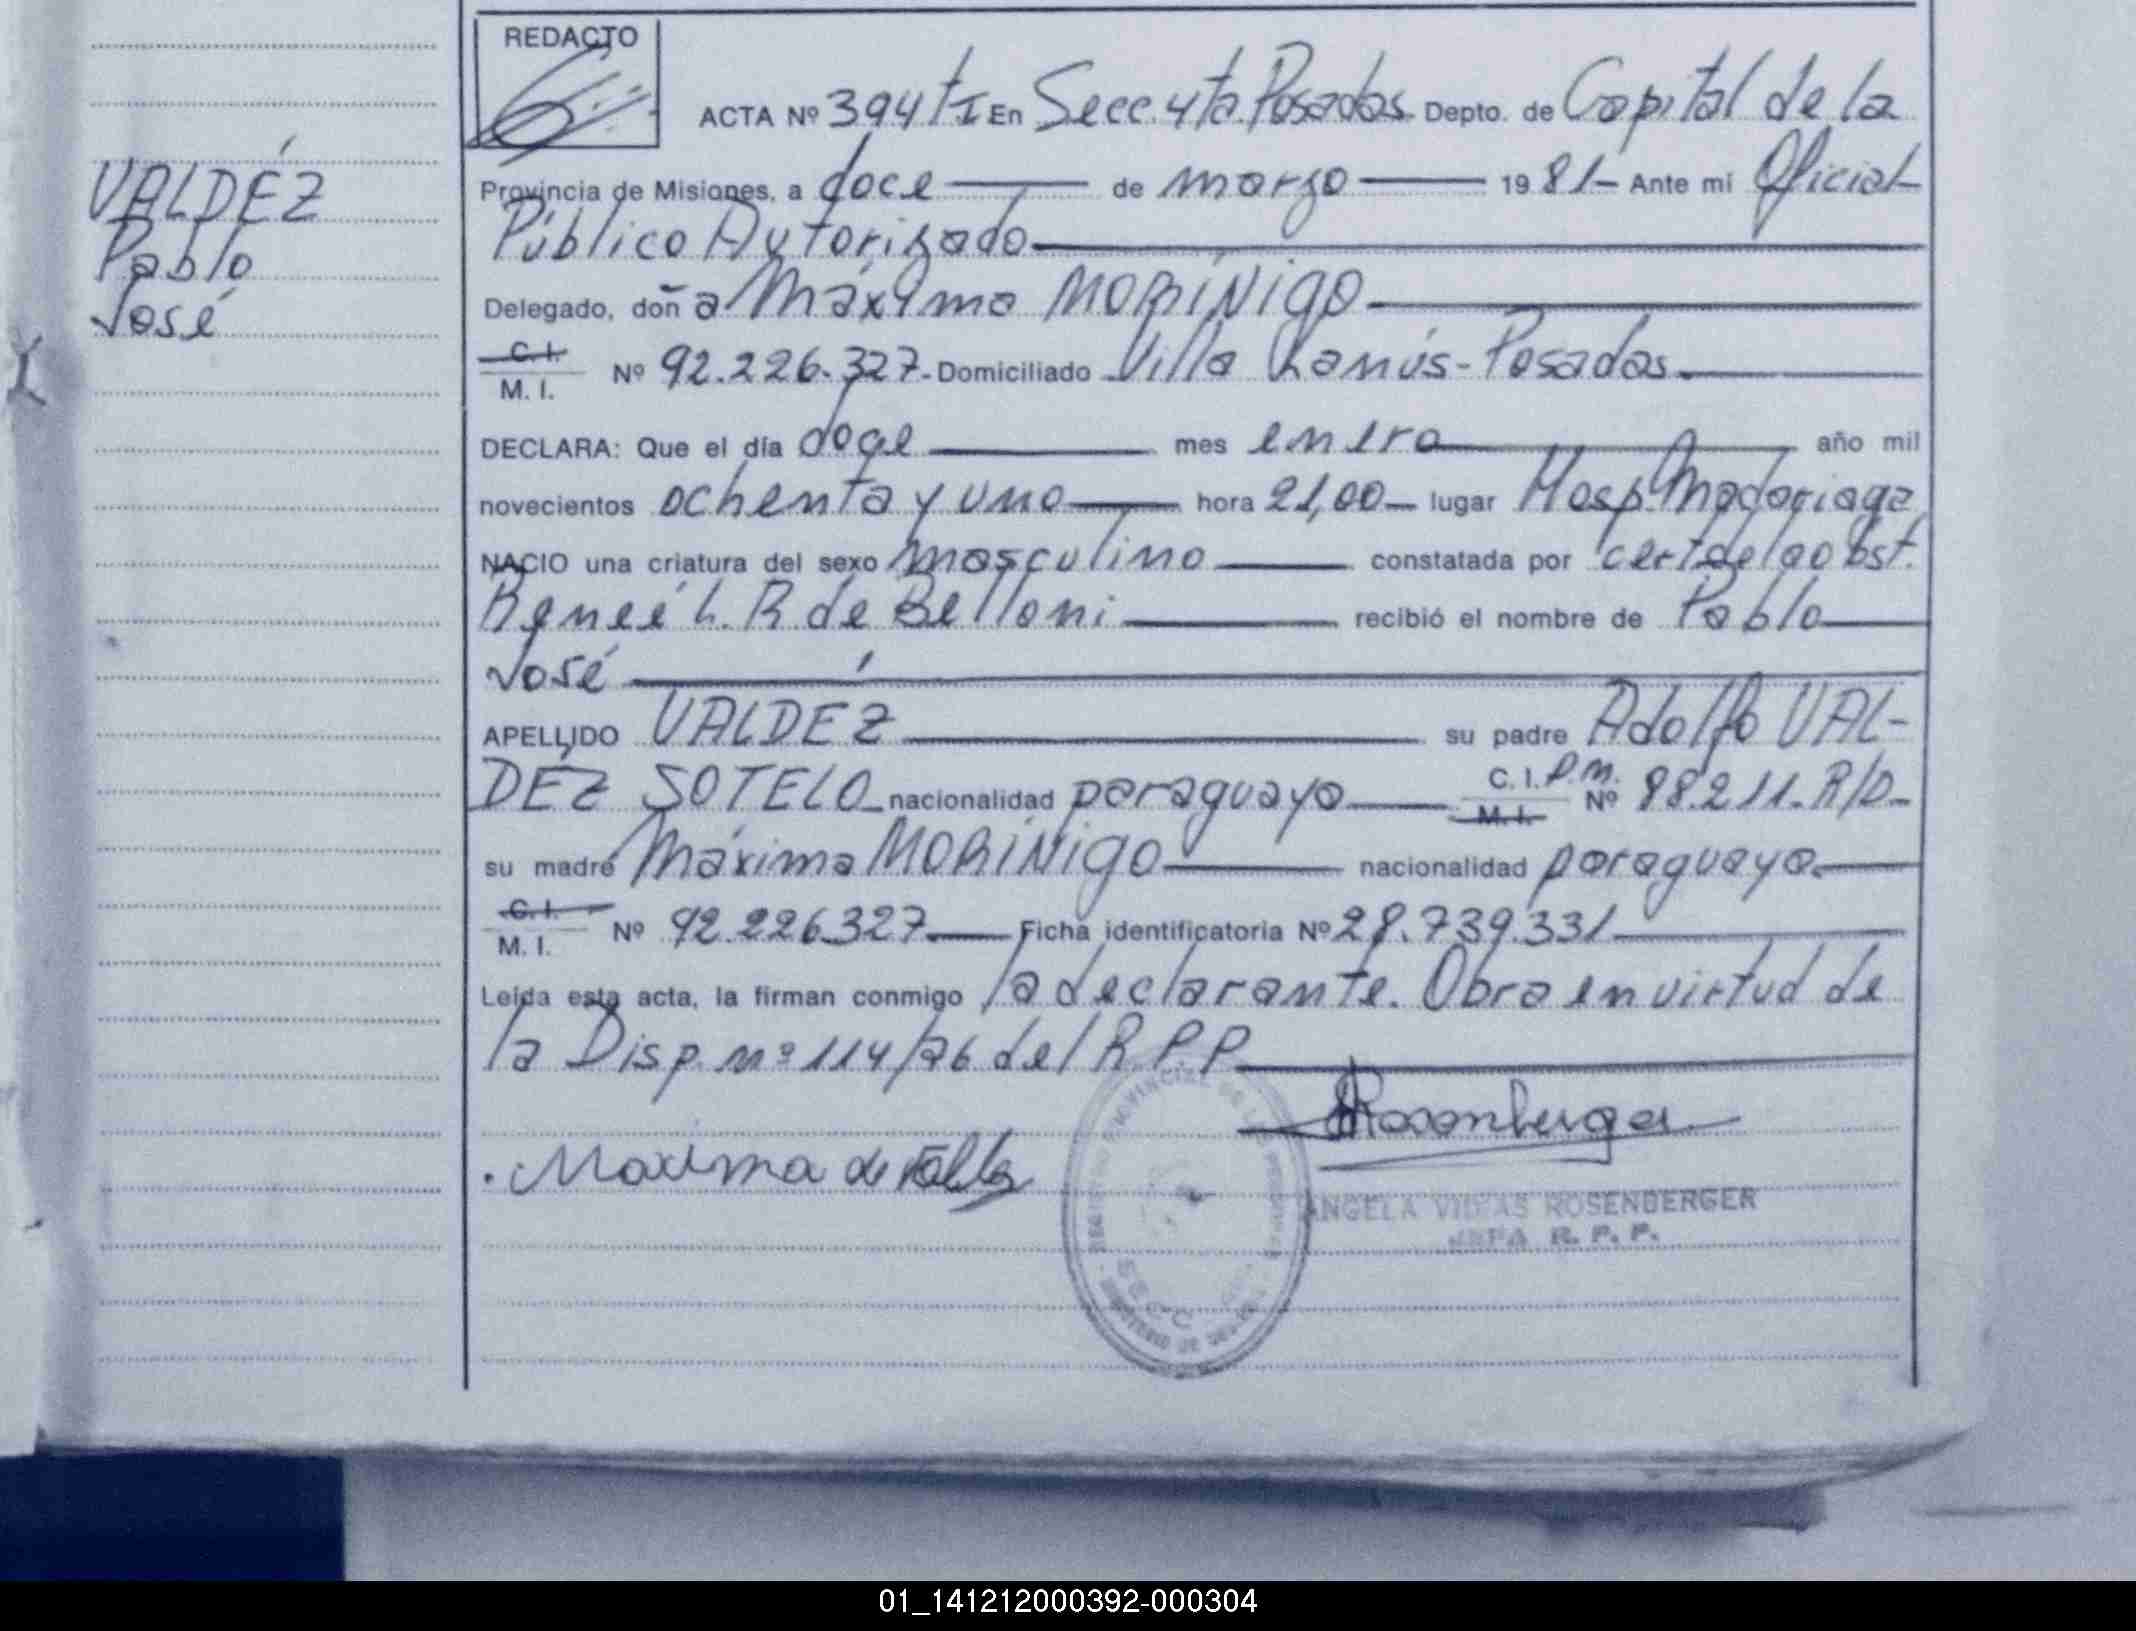 REDACTO
ACTA Nº 394 tI En Secc. 4ta. Posadas. Depto. de Capital de la
Provincia de Misiones, a doce de marzo 1981- Ante mi Oficial
Público Autorizado
Delegado, doña Máxima MORÍNIGO
C. I.
M. I. Nº 92.226.327- Domiciliado Villa Lanús-Posadas.
DECLARA: Que el día doce mes enero año mil
novecientos ochenta y uno hora 21,00- lugar Hosp. Madariaga
NACIO una criatura del sexo masculino constatada por cert. de la obst.
Reneé L. R. de Belloni recibió el nombre de Pablo
José
APELLIDO VALDÉZ su padre Adolfo VAL-
DÉZ SOTELO nacionalidad paraguayo C. I. P. M. Nº 88.211. R/D-
M. I.
su madre Máxima MORÍNIGO nacionalidad paraguaya.
C. I.
M. I. Nº 92.226.327 Ficha identificatoria Nº 28.739.331
Leída esta acta, la firman conmigo la declarante. Obra en virtud de
la Disp. nº 114/76 del R.P.P
VALDÉZ
Pablo
José
Maxima de
Rosenberger
ANGELA ROSENBERGER
JEFA R. P. P.
01_141212000392-000304